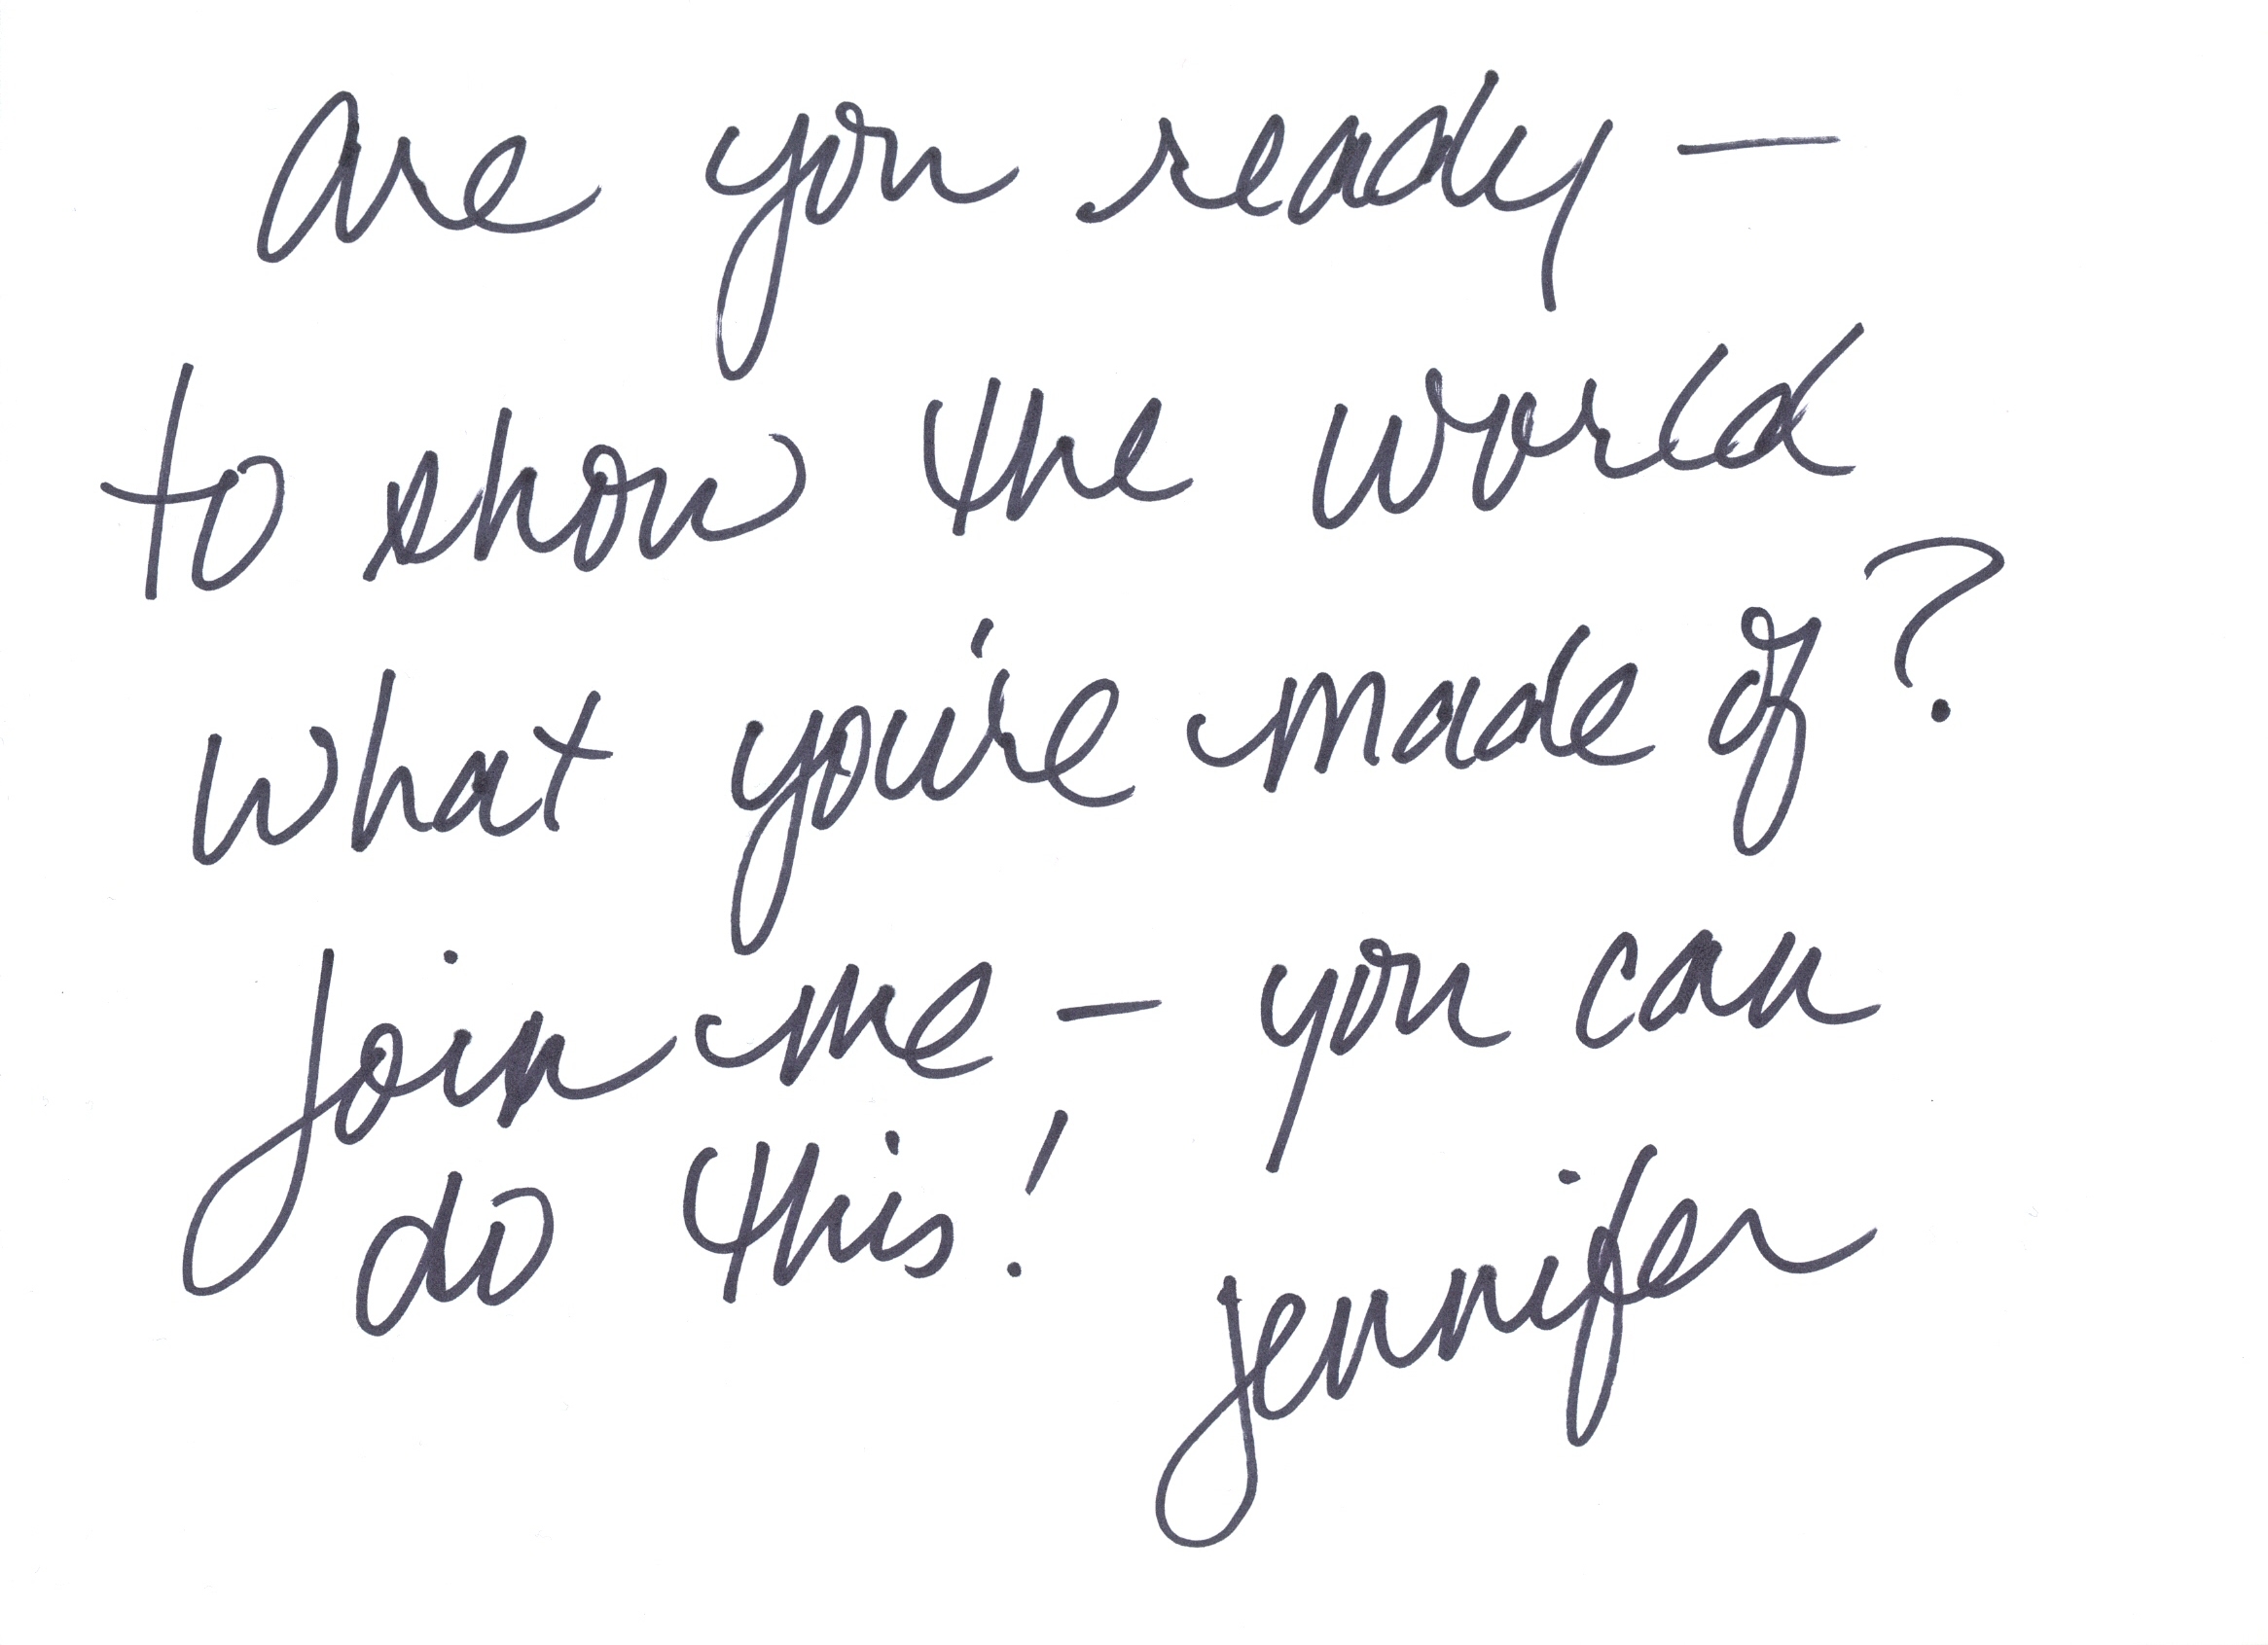 Are you ready —
to show the world
what you're made of?
Join me — you can
do this!
jennifer